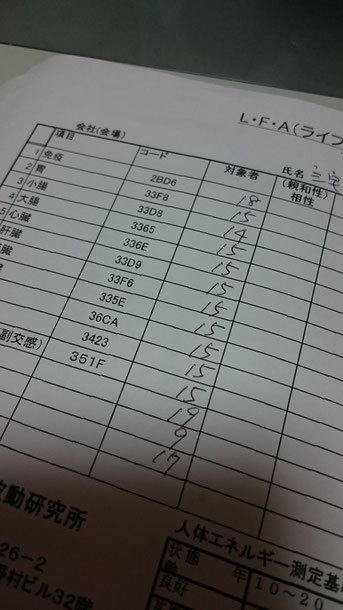 L・F・A(ライフ
会社(会場)
氏名 三宅
項目
コード
対象者
(親和性)
相性
1 免疫
2 胃
3 小腸
4 大腸
5 心臓
肝臓
臓
(副交感)
2BD6
33F8
33D8
3365
336E
33D9
33F6
335E
36CA
3423
351F
18
15
14
15
15
15
15
15
15
19
9
17
波動研究所
26-2
野村ビル32階
人体エネルギー測定基
状態 年
良好 10~20